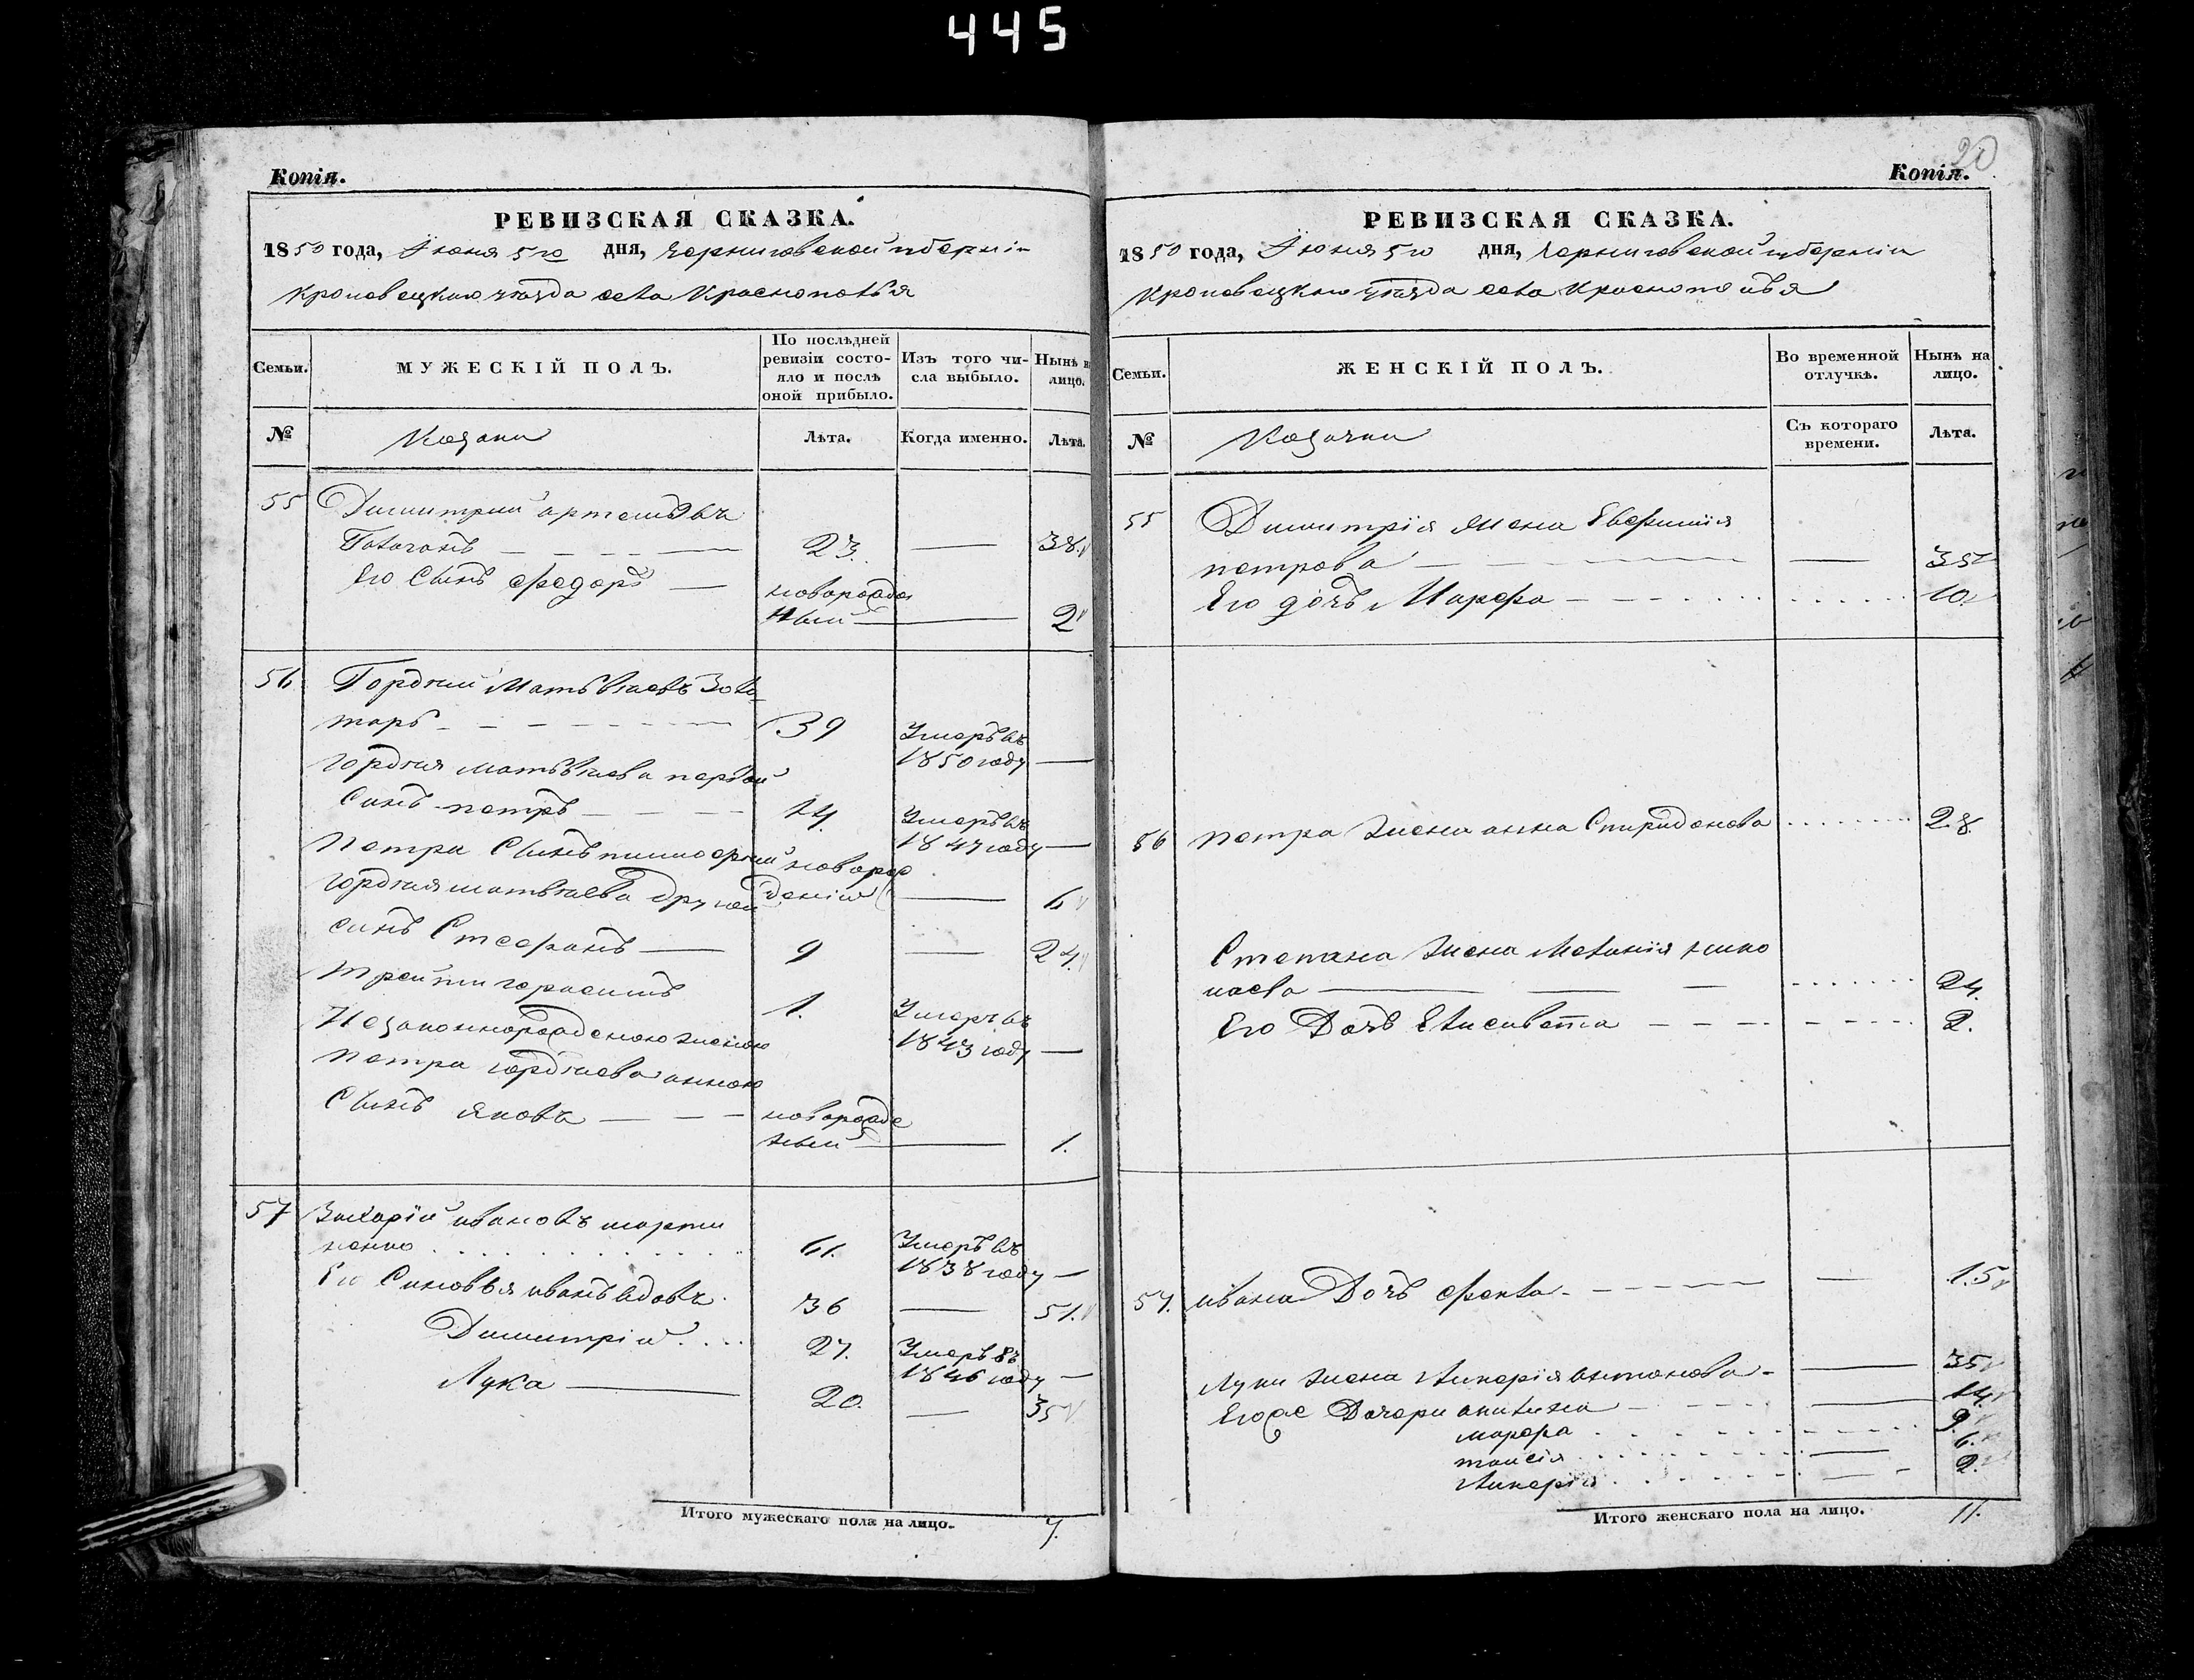 445
Копія.
РЕВИЗСКАЯ СКАЗКА.
1850 года, Іюня 5го дня, Черниговской губерніи
Кролевецкаго уѣзда села Краснополья
Семьи.
МУЖЕСКІЙ ПОЛЪ.
По послѣдней ревизіи состояло и послѣ оной прибыло.
Изъ того числа выбыло.
Нынѣ на лицо.
№
Козаки
Лѣта.
Когда именно.
Лѣта.
55 Димитрий Артемовъ
23. — 38.
Его Сынъ Федоръ —
новорожден
ный — 2
56 Гордѣй Матвѣевъ Золо
тарь 39 Умеръ въ
1850 году —
Гордѣя Матвѣева первой
Синъ Петръ 14. Умеръ въ
1847 году —
Петра Сынъ Тимофей новорож
Гордѣя Матвѣева другой деній — 6
синъ Стефанъ — 9 — 24.
Третій Герасимъ
1. Умеръ въ
1843 году —
Незаконнорожденою женою
Петра Гордѣева Анною
Сынъ Яковъ — новорожде
ный — 1.
57 Захарій Ивановъ Марти
ненко 61. Умеръ въ
1838 году —
Его Синовья Иванъ вдовъ 36 — 51.
Димитрій 27. Умеръ въ
1846 году —
Лука — 20. — 35
Итого мужескаго пола на лицо. 7.
20
Копія.
РЕВИЗСКАЯ СКАЗКА.
1850 года, Іюня 5го дня, Черниговской губерніи
Кролевецкаго уѣзда села Краснополья
Семьи.
ЖЕНСКІЙ ПОЛЪ.
Во временной отлучкѣ.
Нынѣ на лицо.
№
Козачки
Съ котораго времени.
Лѣта.
55 Димитрія Жена Евфимія
Петрова — 35
Его дочь Марфа 10.
56 Петра Жена Анна Спиридонова 28.
Степана Жена Меланія Нико
лаева 24.
Его Дочь Елисавета 2.
57. Ивана Дочь Фекла — 15
Луки Жена Ликерія Антонова — 35
Егоже Дочери Акилина — 14
Марфа 9.
Таисія — 6.
Ликерія — 2.
Итого женскаго пола на лицо. 11.